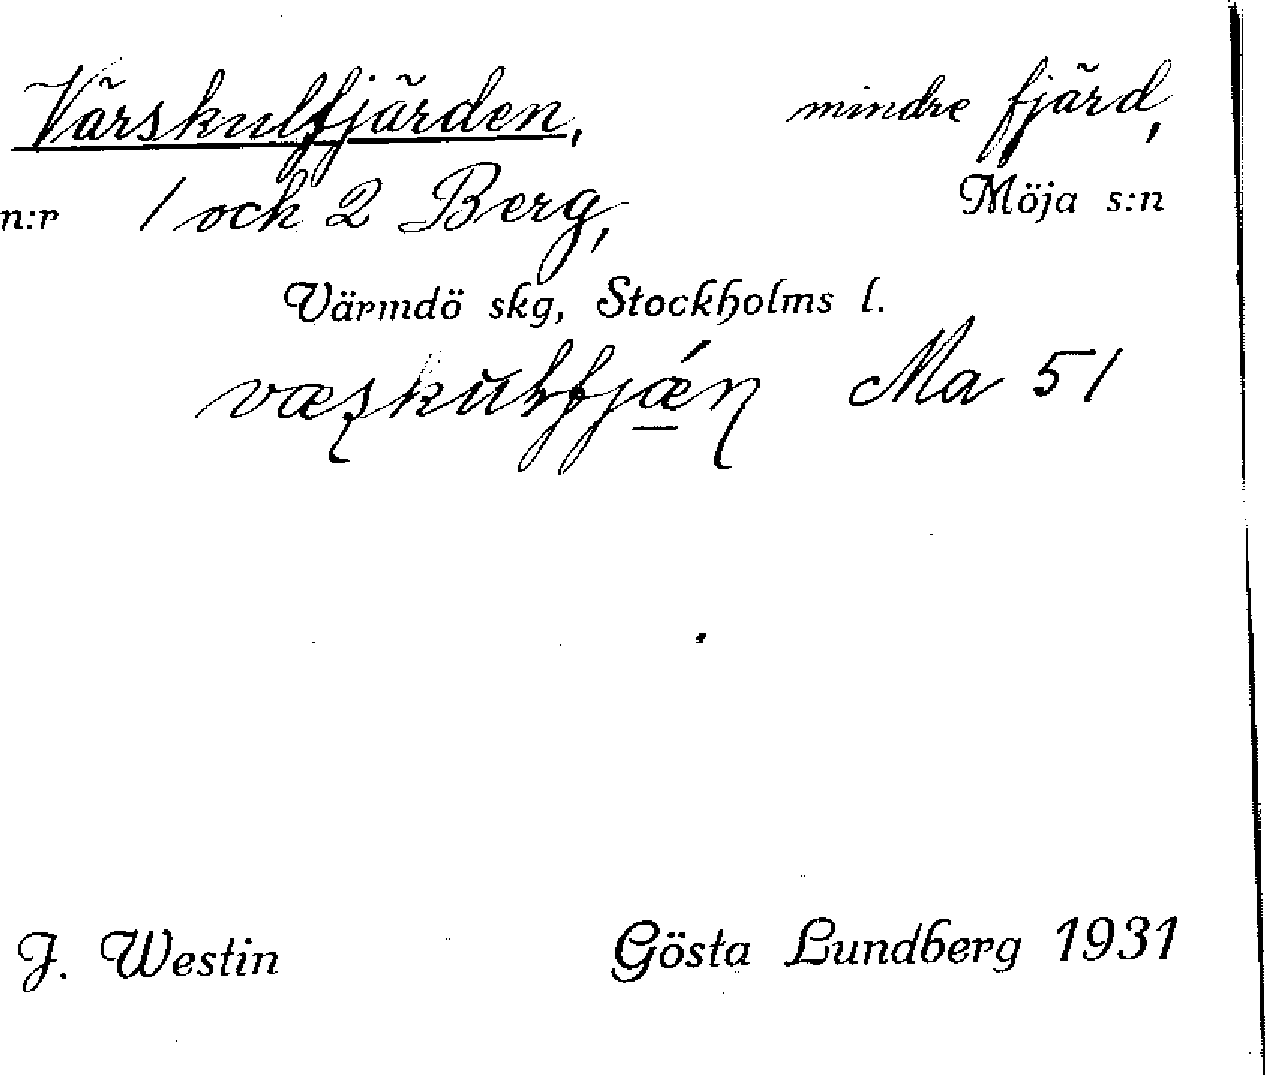 Värskulfjärden, mindre fjärd,
n:r 1 och 2 Berg, Möja s:n
Värmdö skg, Stockholms l.
Ma 51
J. Westin Gösta Lundberg 1931